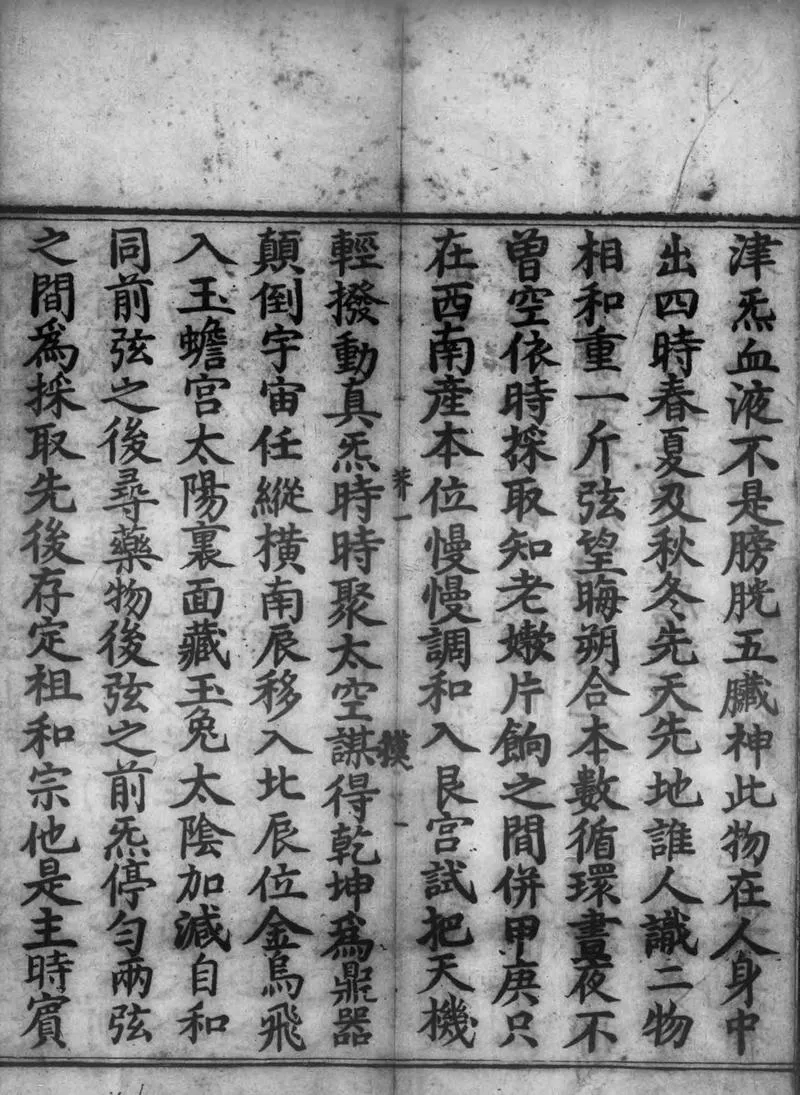 津炁血液不是膀胱五臟神此物在人身中
出四時春夏及秋冬先天先地誰人識二物
相和重一斤弦望晦朔合本數循環晝夜不
曾空依時採取知老嫩片餉之間併甲庚只
在西南產本位慢慢調和入艮宮試把天機
輕撥動真炁時時聚太空謀得乾坤為鼎器
顛倒宇宙任縱橫南辰移入北辰位金烏飛
入玉蟾宮太陽裏面藏玉兔太陰加減自和
同前弦之後尋藥物後弦之前炁停勻兩弦
之間為採取先後存定祖和宗他是主時賓